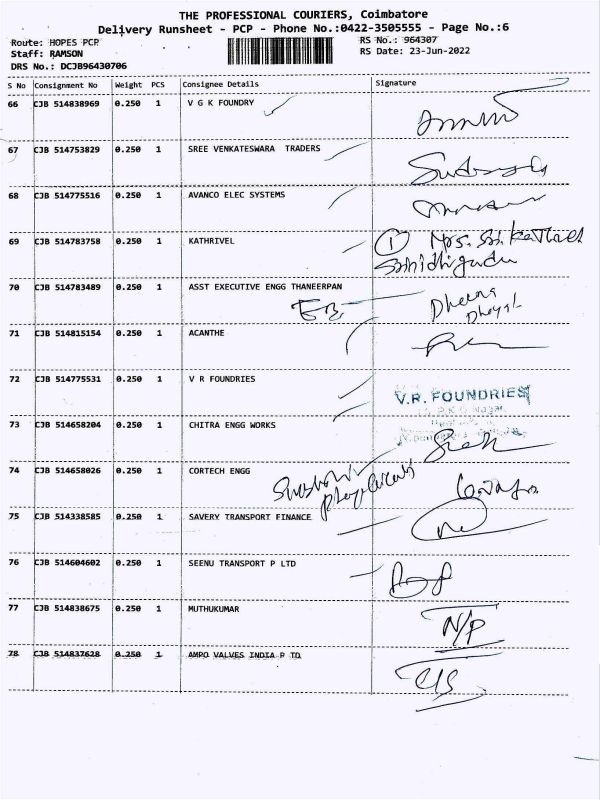 THE PROFESSIONAL COURIERS, Coimbatore
Delivery Runsheet - PCP - Phone No.:0422-3505555 - Page No.:6
Route: HOPES PCP
RS No.: 964307
Staff: RAMSON
RS Date: 23-Jun-2022
DRS No.: DCJB96430706
S No Consignment No Weight PCS Consignee Details Signature
66 CJB 514838969 0.250 1 V G K FOUNDRY
67 CJB 514753829 0.250 1 SREE VENKATESWARA TRADERS
68 CJB 514775516 0.250 1 AVANCO ELEC SYSTEMS
69 CJB 514783758 0.250 1 KATHRIVEL
① Mrs.
70 CJB 514783489 0.250 1 ASST EXECUTIVE ENGG THANEERPAN
EB
71 CJB 514815154 0.250 1 ACANTHE
72 CJB 514775531 0.250 1 V R FOUNDRIES
V.R. FOUNDRIES
73 CJB 514658204 0.250 1 CHITRA ENGG WORKS
74 CJB 514658026 0.250 1 CORTECH ENGG
75 CJB 514338585 0.250 1 SAVERY TRANSPORT FINANCE
76 CJB 514604602 0.250 1 SEENU TRANSPORT P LTD
77 CJB 514838675 0.250 1 MUTHUKUMAR
N/P
78 CJB 514837628 0.250 1 AMPO VALVES INDIA P TD
C/S